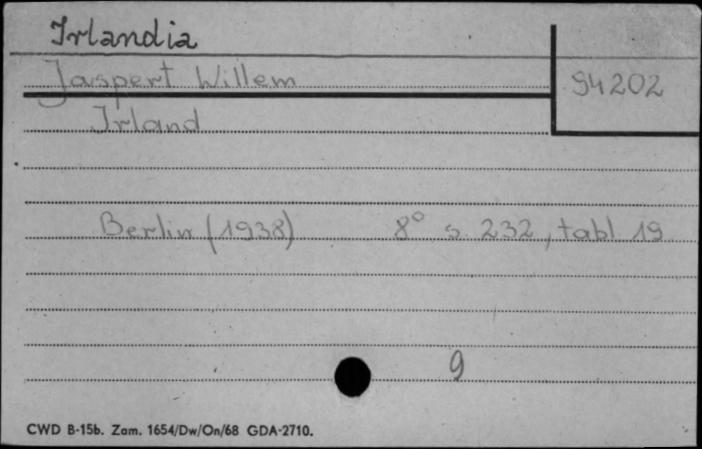 Irlandia
Jaspert Willem
94202
Irland
Berlin (1938) 8° s. 232, tabl 19
9
CWD B-15b. Zam. 1654/Dw/On/68 GDA-2710.